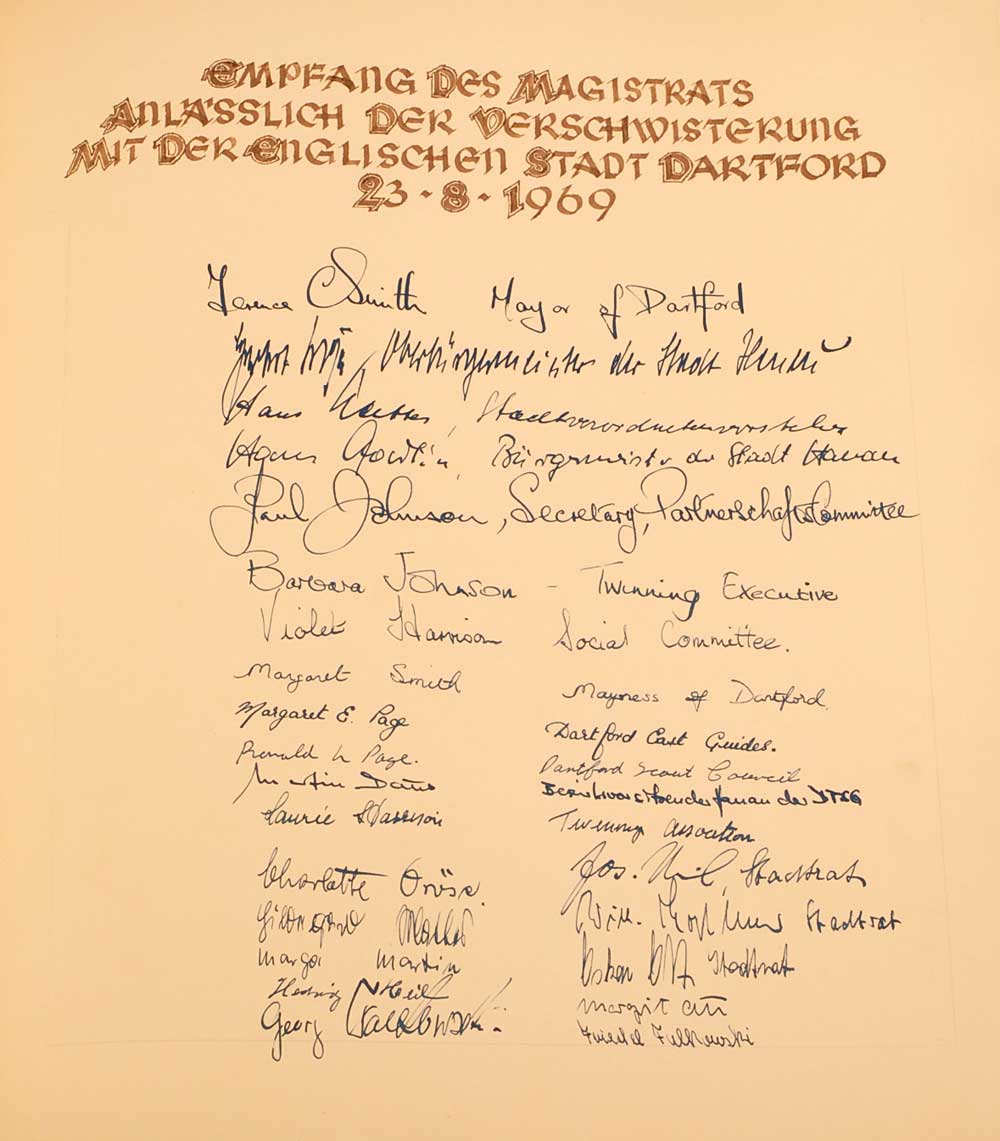 EMPFANG DES MAGISTRATS
ANLÄSSLICH DER VERSCHWISTERUNG
MIT DER ENGLISCHEN STADT DARTFORD
23 · 8 · 1969
Terence C Smith Mayor of Dartford
Oberbürgermeister der Stadt Hanau
Hans, Stadtverordnetenvorsteher
Hans, Bürgermeister der Stadt Hanau
Paul Johnson, Secretary, Partnerschafts Committee
Barbara Johnson - Twinning Executive
Violet Harrison Social Committee.
Margaret Smith Mayoress of Dartford.
Margaret E. Page Dartford East Guides.
Ronald W Page. Dartford Scout Council
Martin
Laurie Harrison Twinning Association
Charlotte Dröse. Jos., Stadtrat
Stadtrat
Marga Martin Stadtrat
Hedwig Margit
Georg Friedel Fulkowski